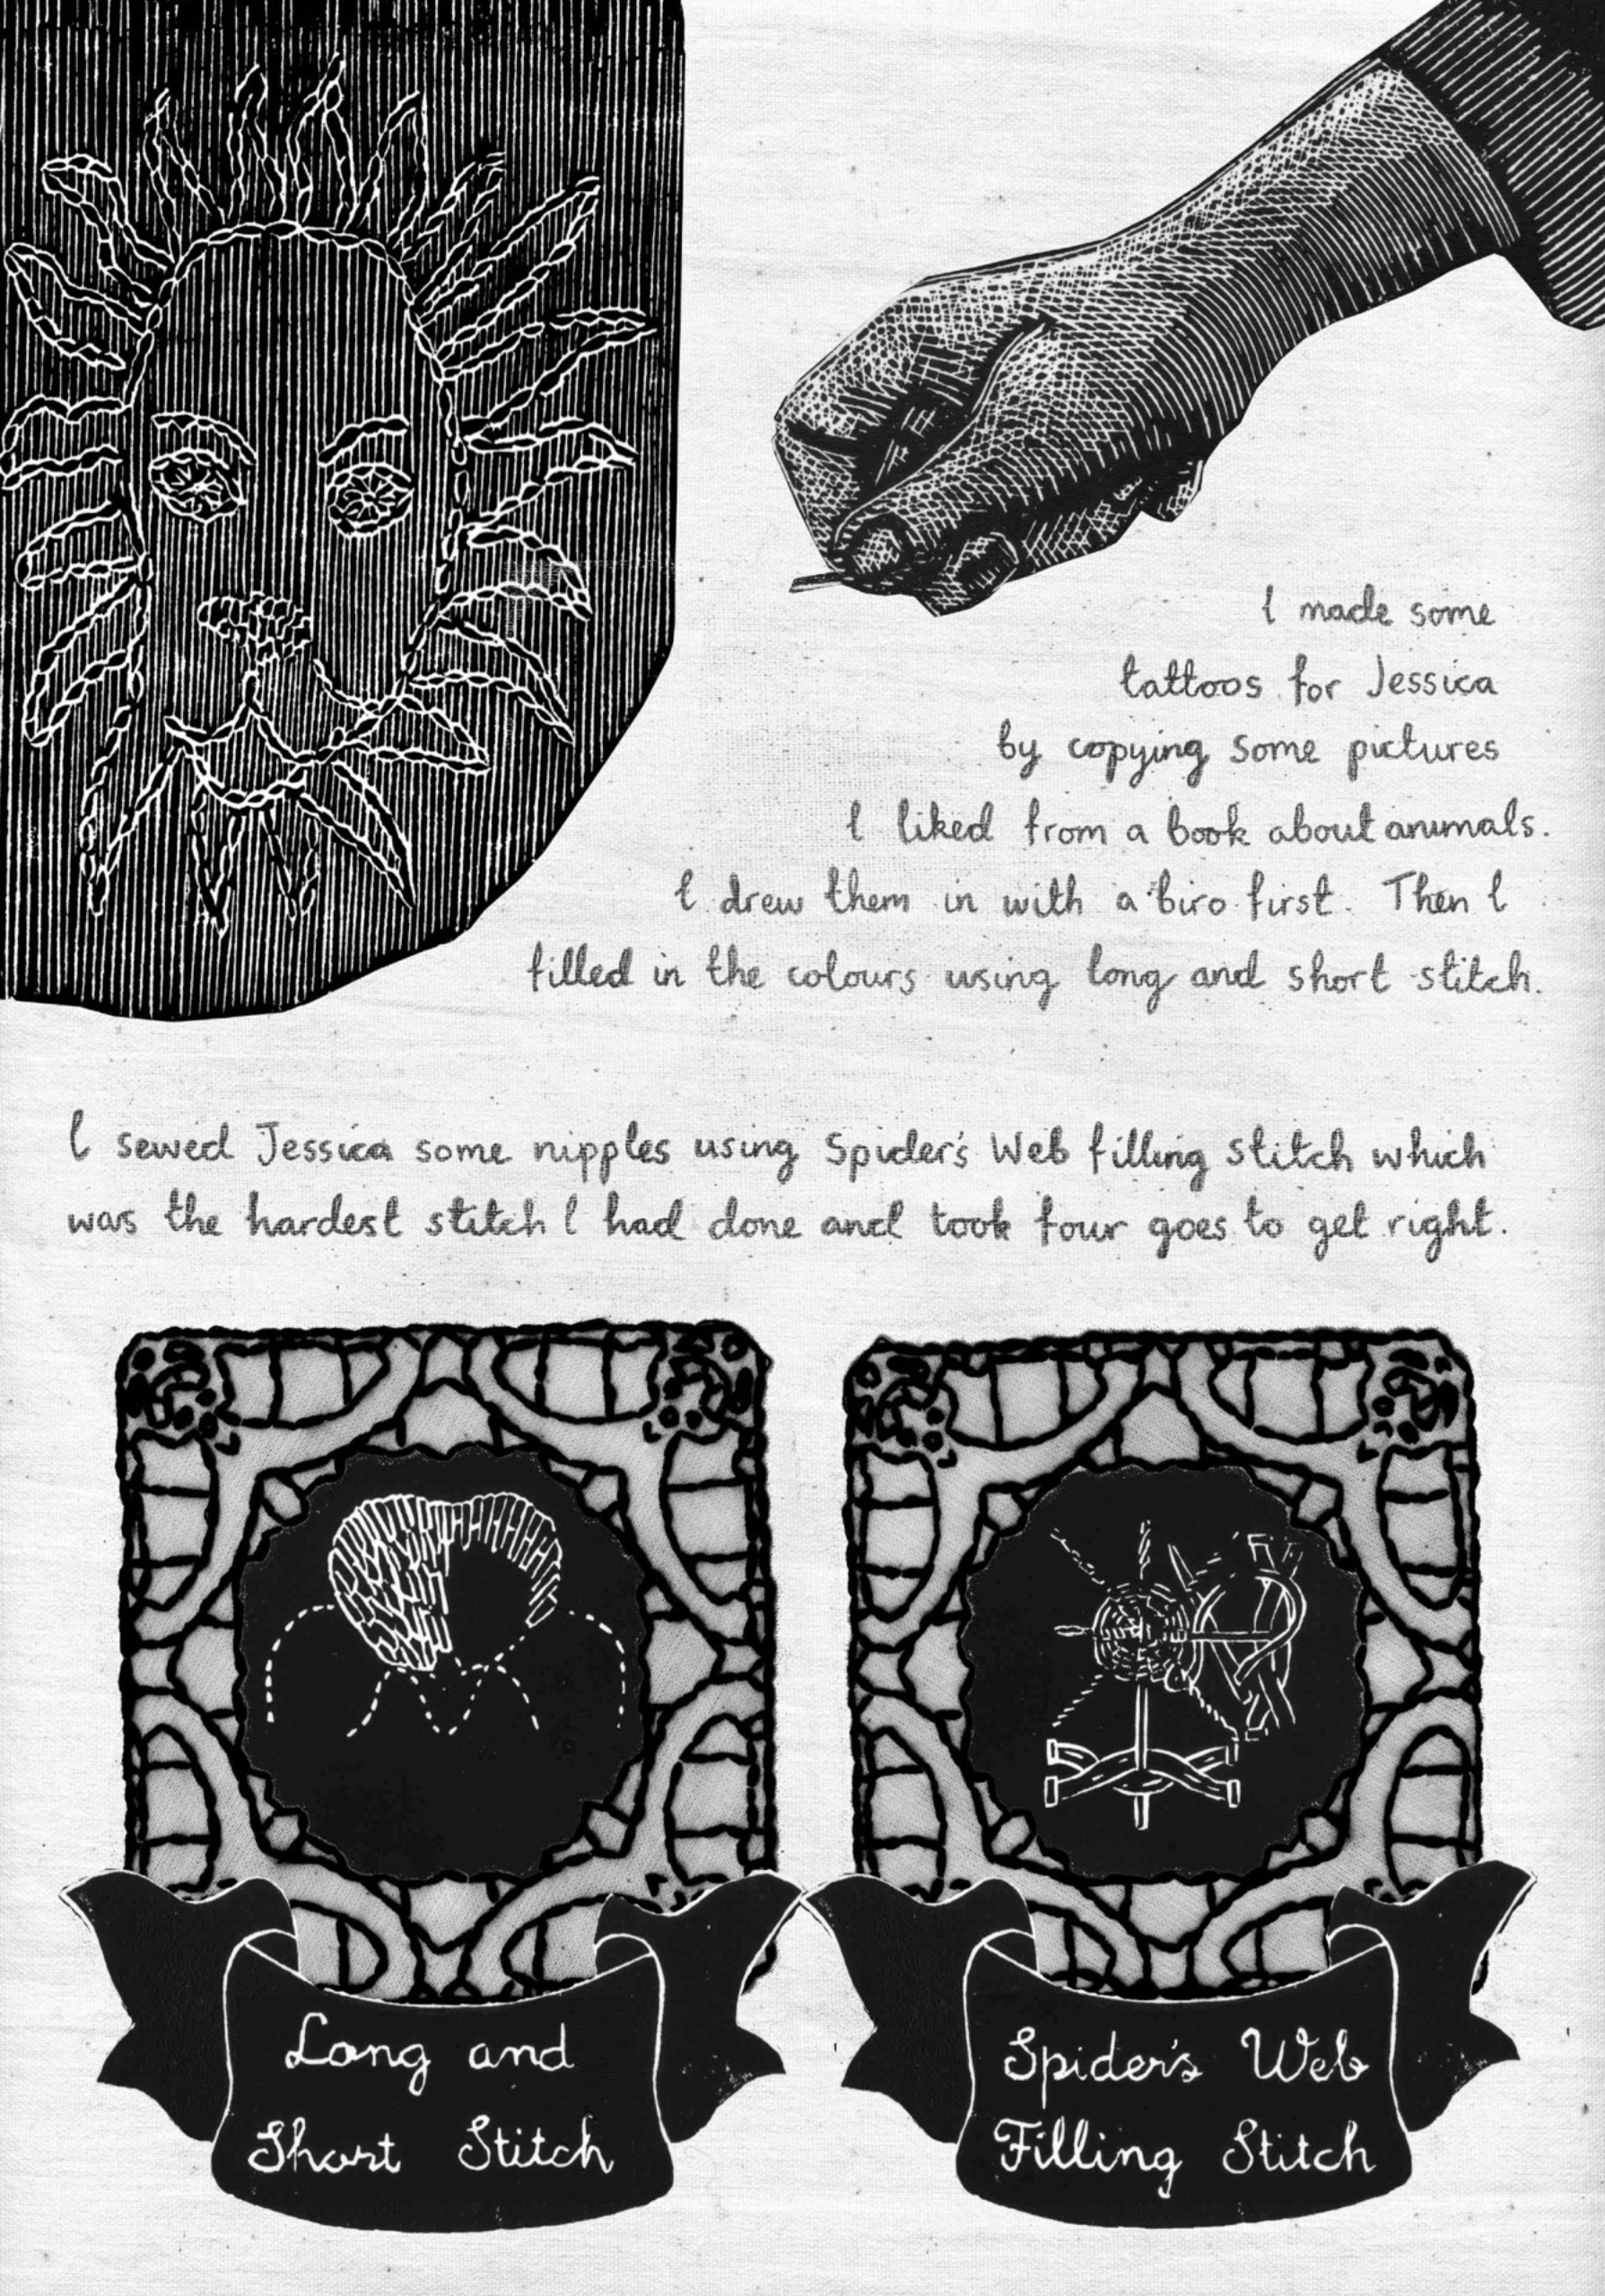 I made some
tattoos for Jessica
by copying some pictures
I liked from a book about animals.
I drew them in with a biro first. Then I
filled in the colours using long and short stitch.
I sewed Jessica some nipples using Spider's Web filling stitch which
was the hardest stitch I had done and took four goes to get right.
Long and
Short Stitch
Spider's Web
Filling Stitch